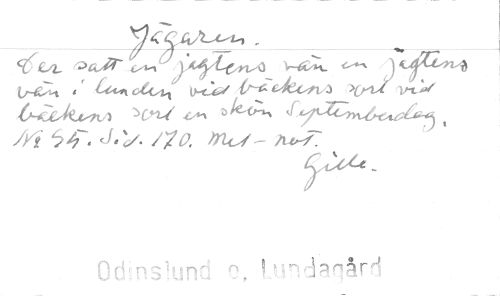 Jägaren.
Der satt en jagtens vän en jagtens
vän i lunden vid bäckens sorl vid
bäckens sorl en skön Septemberdag.
No 95. Sid. 170. Mel-not.
Gille.
Odinslund o, Lundagård